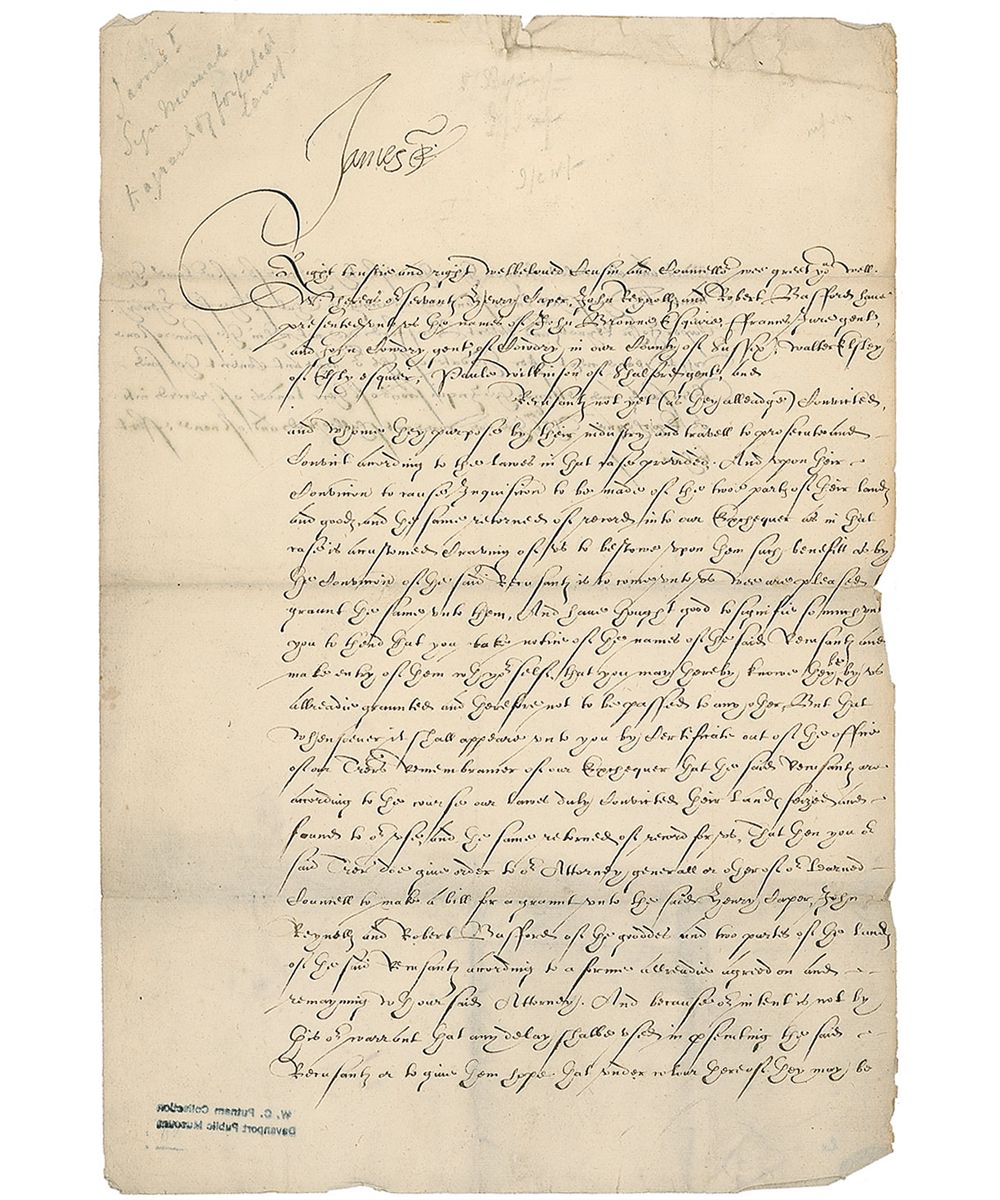 James I
Sign Manual
to a grant of forfeited
land
James R
Right trustie and right welbeloved Cousin and Councellor wee greet yow well.
Whereas or servantz Henry Japer, John Reynollz and Robert Bafford have
presented unto us the names of John Browne Esquire, Ffrances gent,
and John Cowdry gent, of Cowdry in our County of Sussex, Walter Elsley
of Elsly esquier, Paule Wilkinson of Shalford gent, and
Recusantz not yet (as they alleadge) Convicted,
and whome they purpose by their industry and travell to prosecute and
Convict according to the lawes in that case provided. And upon their
Conviccion to cause Inquisicion to be made of the twoe partz of their landz
and goodz and the same retorned of record into our Exchequer as in that
case is accustomed Craving of us to bestowe upon them such benefitt as by
the Conviccion of the said Recusantz is to come unto us wee are pleased
graunt the same unto them, And have thought good to signifie so much unt
you to thend that you take notice of the names of the said Recusantz and
make entry of them wth yor self, that you may thereby knowe they be by us
allreadie graunted and therefore not to be passed to any other, But that
whensoever it shall appeare unto you by Certificate out of the office
of our Trers Remembrancer of our Exchequer that the said Recusantz are
according to the course our lawes duly Convicted their landz seized and
found to or use, and the same retorned of record for us, That then you or
said Trer doe give order to or Attorney generall or other of or Learned
Councell to make a bill for a graunt unto the said Henry Japer, John
Reynollz and Robert Bafford of the goodes and two partes of the landz
of the said Recusantz according to a forme allreadie agreed on and
remayning wth our said Attorney. And because or intent is not by
this or warrant that any delay shalbe used in psenting the said
Recusantz or to give them hope that under colour thereof they may be
W. C. Putnam Collection
Davenport Public Museum